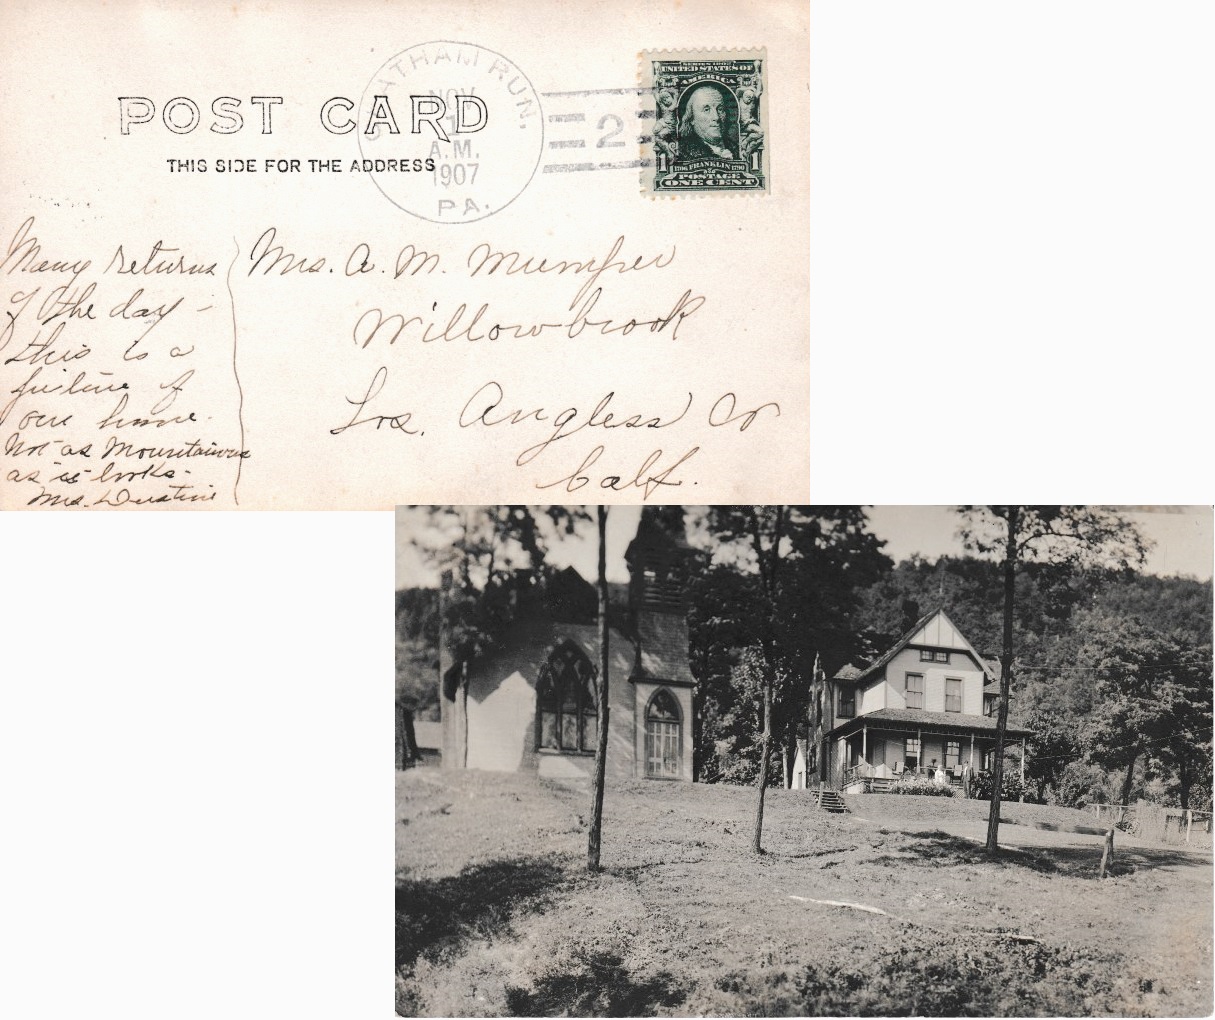 POST CARD
THIS SIDE FOR THE ADDRESS
CHATHAM RUN,
NOV
1
A.M.
1907
PA.
2
SERIES 1902
UNITED STATES OF
AMERICA
1 1706 FRANKLIN 1790 1
POSTAGE
ONE CENT
Many returns
of the day -
this is a
picture of
our home.
Not as Mountainous
as it looks -
Mrs. Dustin
Mrs. A. M. Mumper
Willowbrook
Los. Angless Co
Calf.